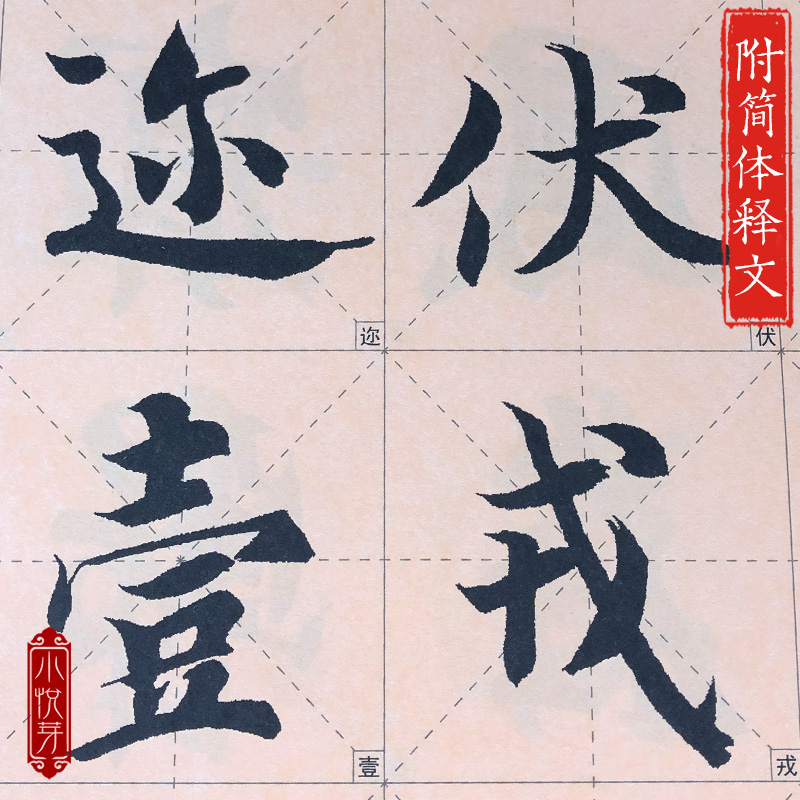 附简体释文
伏
伏
戎
戎
迩
迩
壹
壹
小悦芽